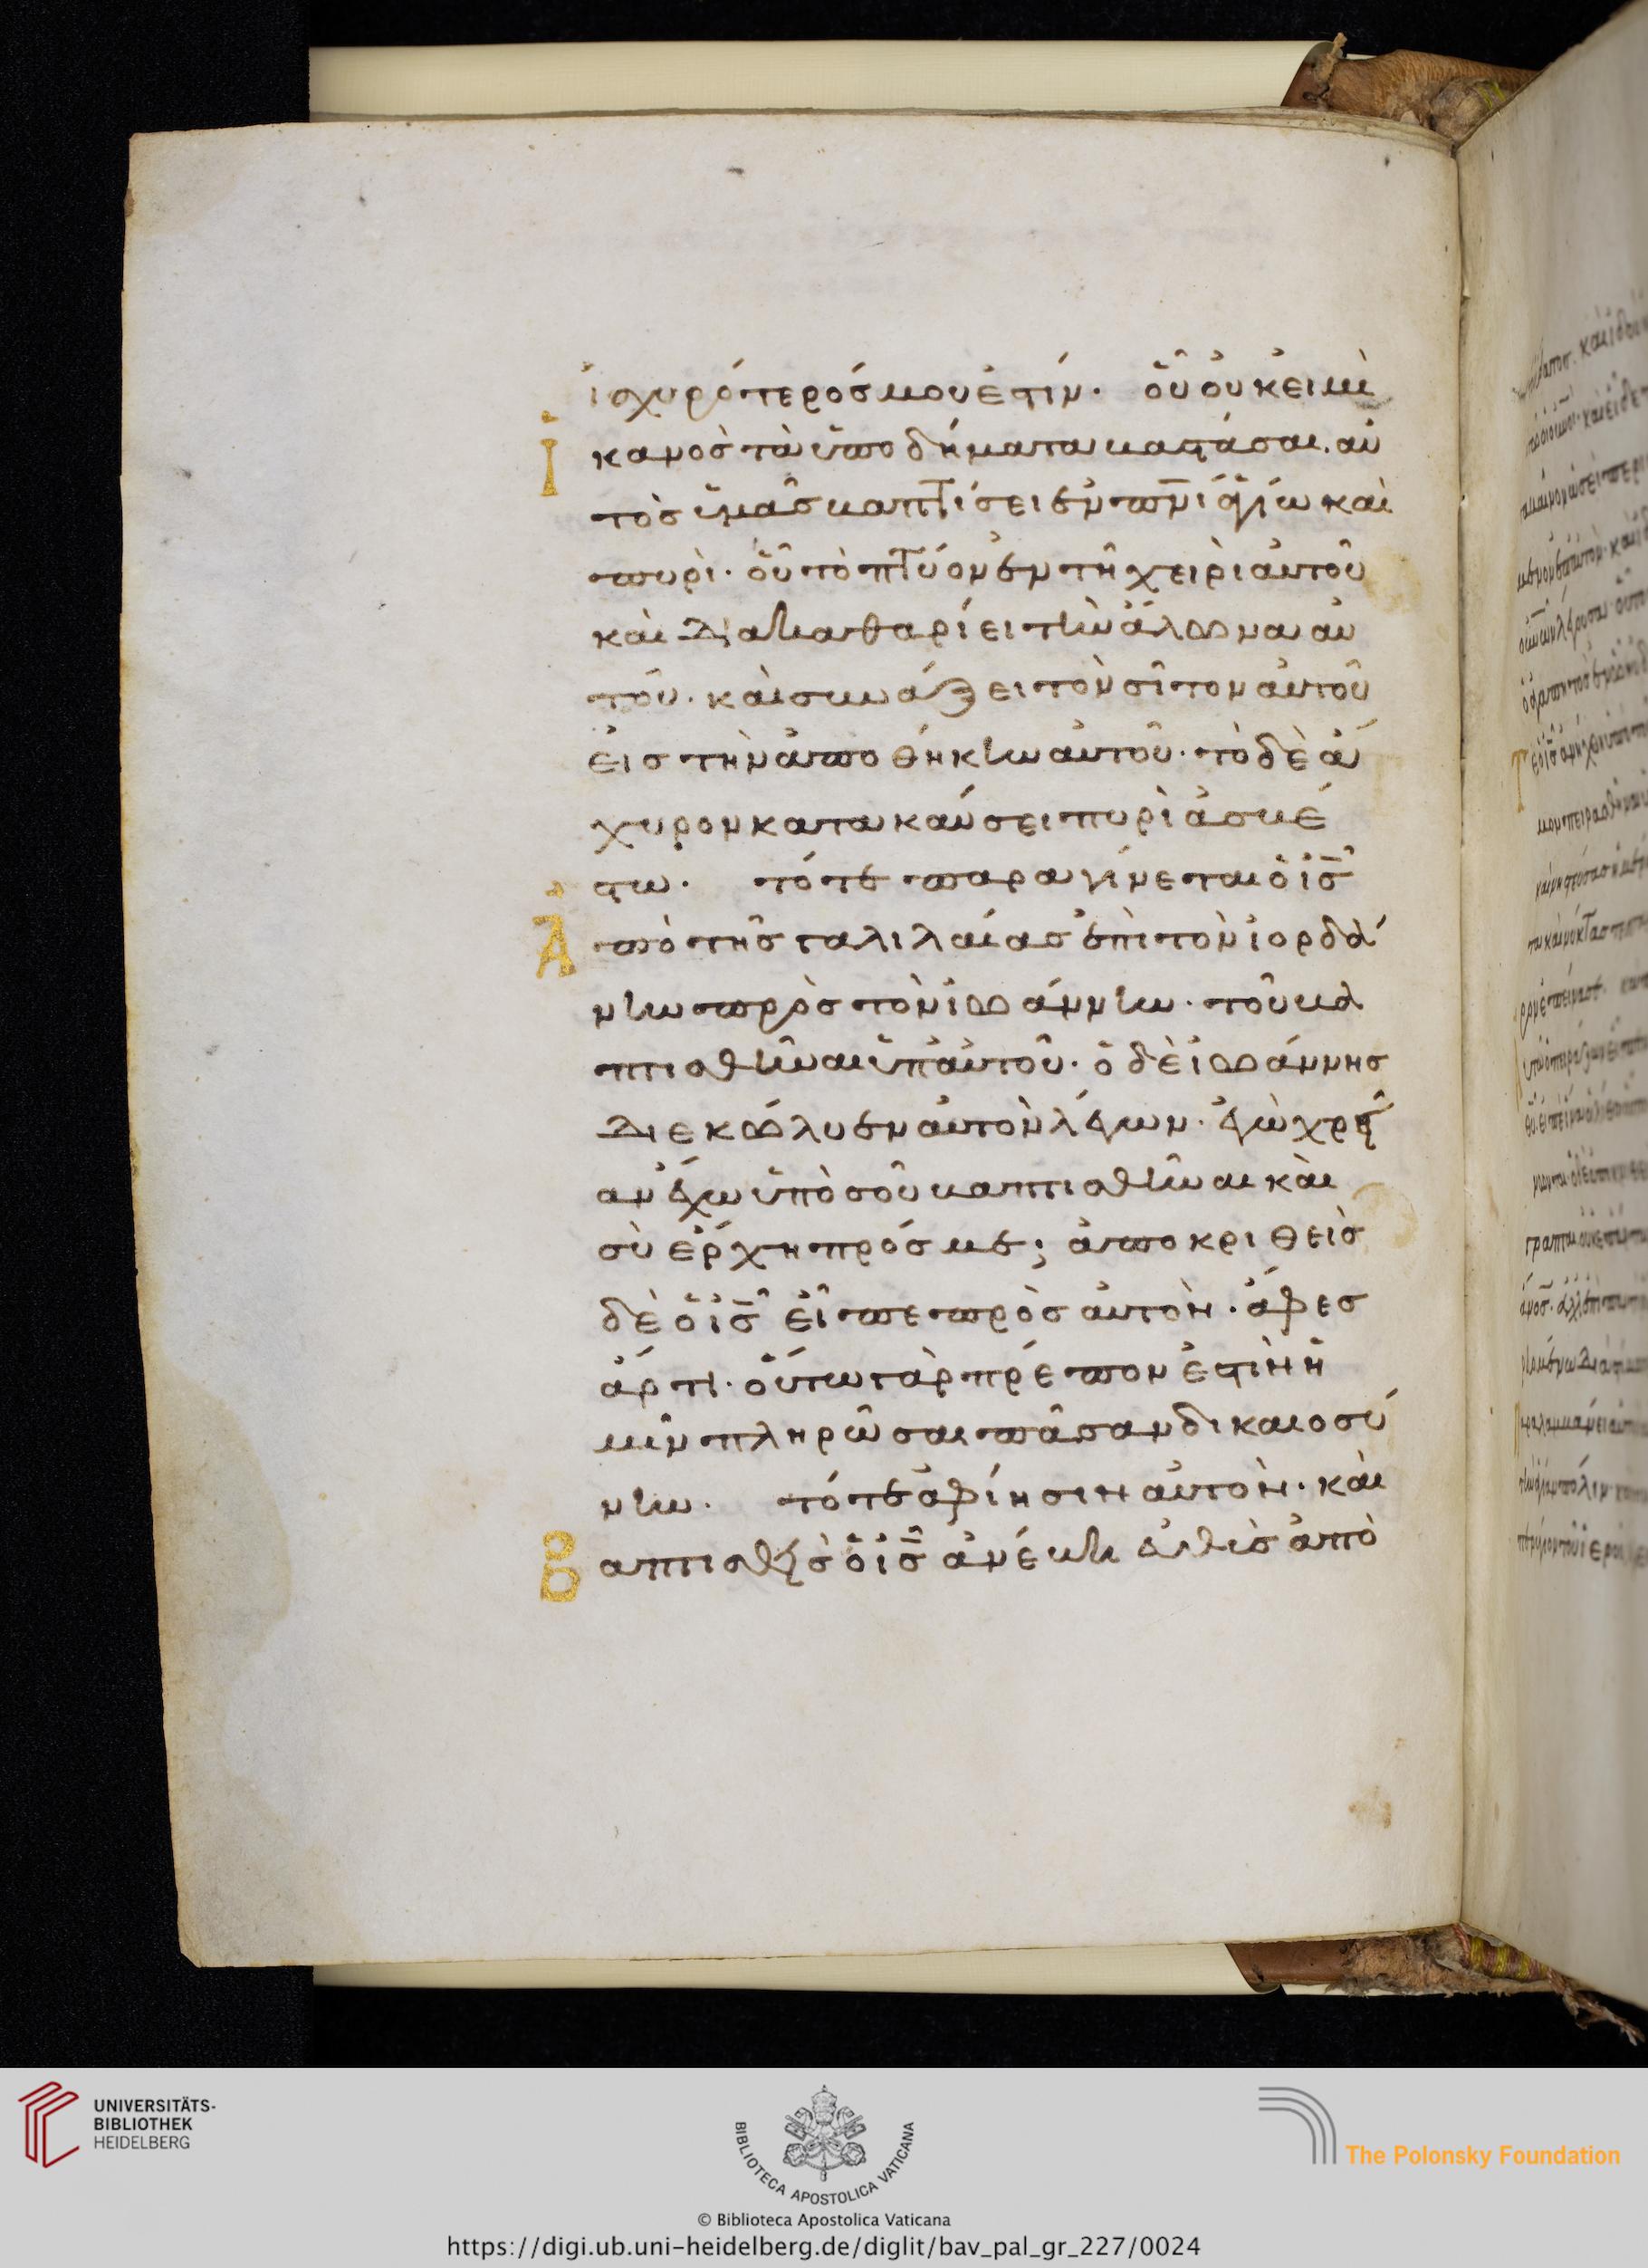 ἰσχυρότερός μου ἐστίν· οὗ οὐκ εἰμὶ
ἱκανὸς τὰ ὑποδήματα βαστάσαι. αὐ
τὸς ὑμᾶς βαπτίσει ἐν πνι ἁγίω καὶ
πυρὶ· οὗ τὸ πτύον ἐν τῆ χειρὶ αὐτοῦ
καὶ διακαθαριεῖ τὴν ἅλωνα αὐ
τοῦ· καὶ συνάξει τὸν σῖτον αὐτοῦ
εἰς τὴν ἀποθήκην αὐτοῦ· τὸ δὲ ἄ
χυρον κατακαύσει πυρὶ ἀσβέ
στω· τότε παραγίνεται ὁ ις
Ἀπὸ τῆς γαλιλαίας ἐπὶ τὸν ἰορδά
νην πρὸς τὸν ἰωάννην· τοῦ βα
πτισθῆναι ὑπ αὐτοῦ· ὁ δὲ ἰωάννης
διεκώλυεν αὐτὸν λέγων· ἐγὼ χρεί
αν ἔχω ὑπὸ σοῦ βαπτισθῆναι καὶ
σὺ ἔρχη πρός με; ἀποκριθεὶς
δὲ ὁ ις εἶπε πρὸς αὐτὸν· ἄφες
ἄρτι· οὕτω γὰρ πρέπον ἐστὶν ἡ
μῖν πληρῶσαι πᾶσαν δικαιοσύ
νην· τότε ἀφίησιν αὐτὸν· καὶ
Βαπτισθεὶς ὁ ις ἀνέβη εὐθὺς ἀπὸ
UNIVERSITÄTS-
BIBLIOTHEK
HEIDELBERG
BIBLIOTECA APOSTOLICA VATICANA
The Polonsky Foundation
© Biblioteca Apostolica Vaticana
https://digi.ub.uni-heidelberg.de/diglit/bav_pal_gr_227/0024